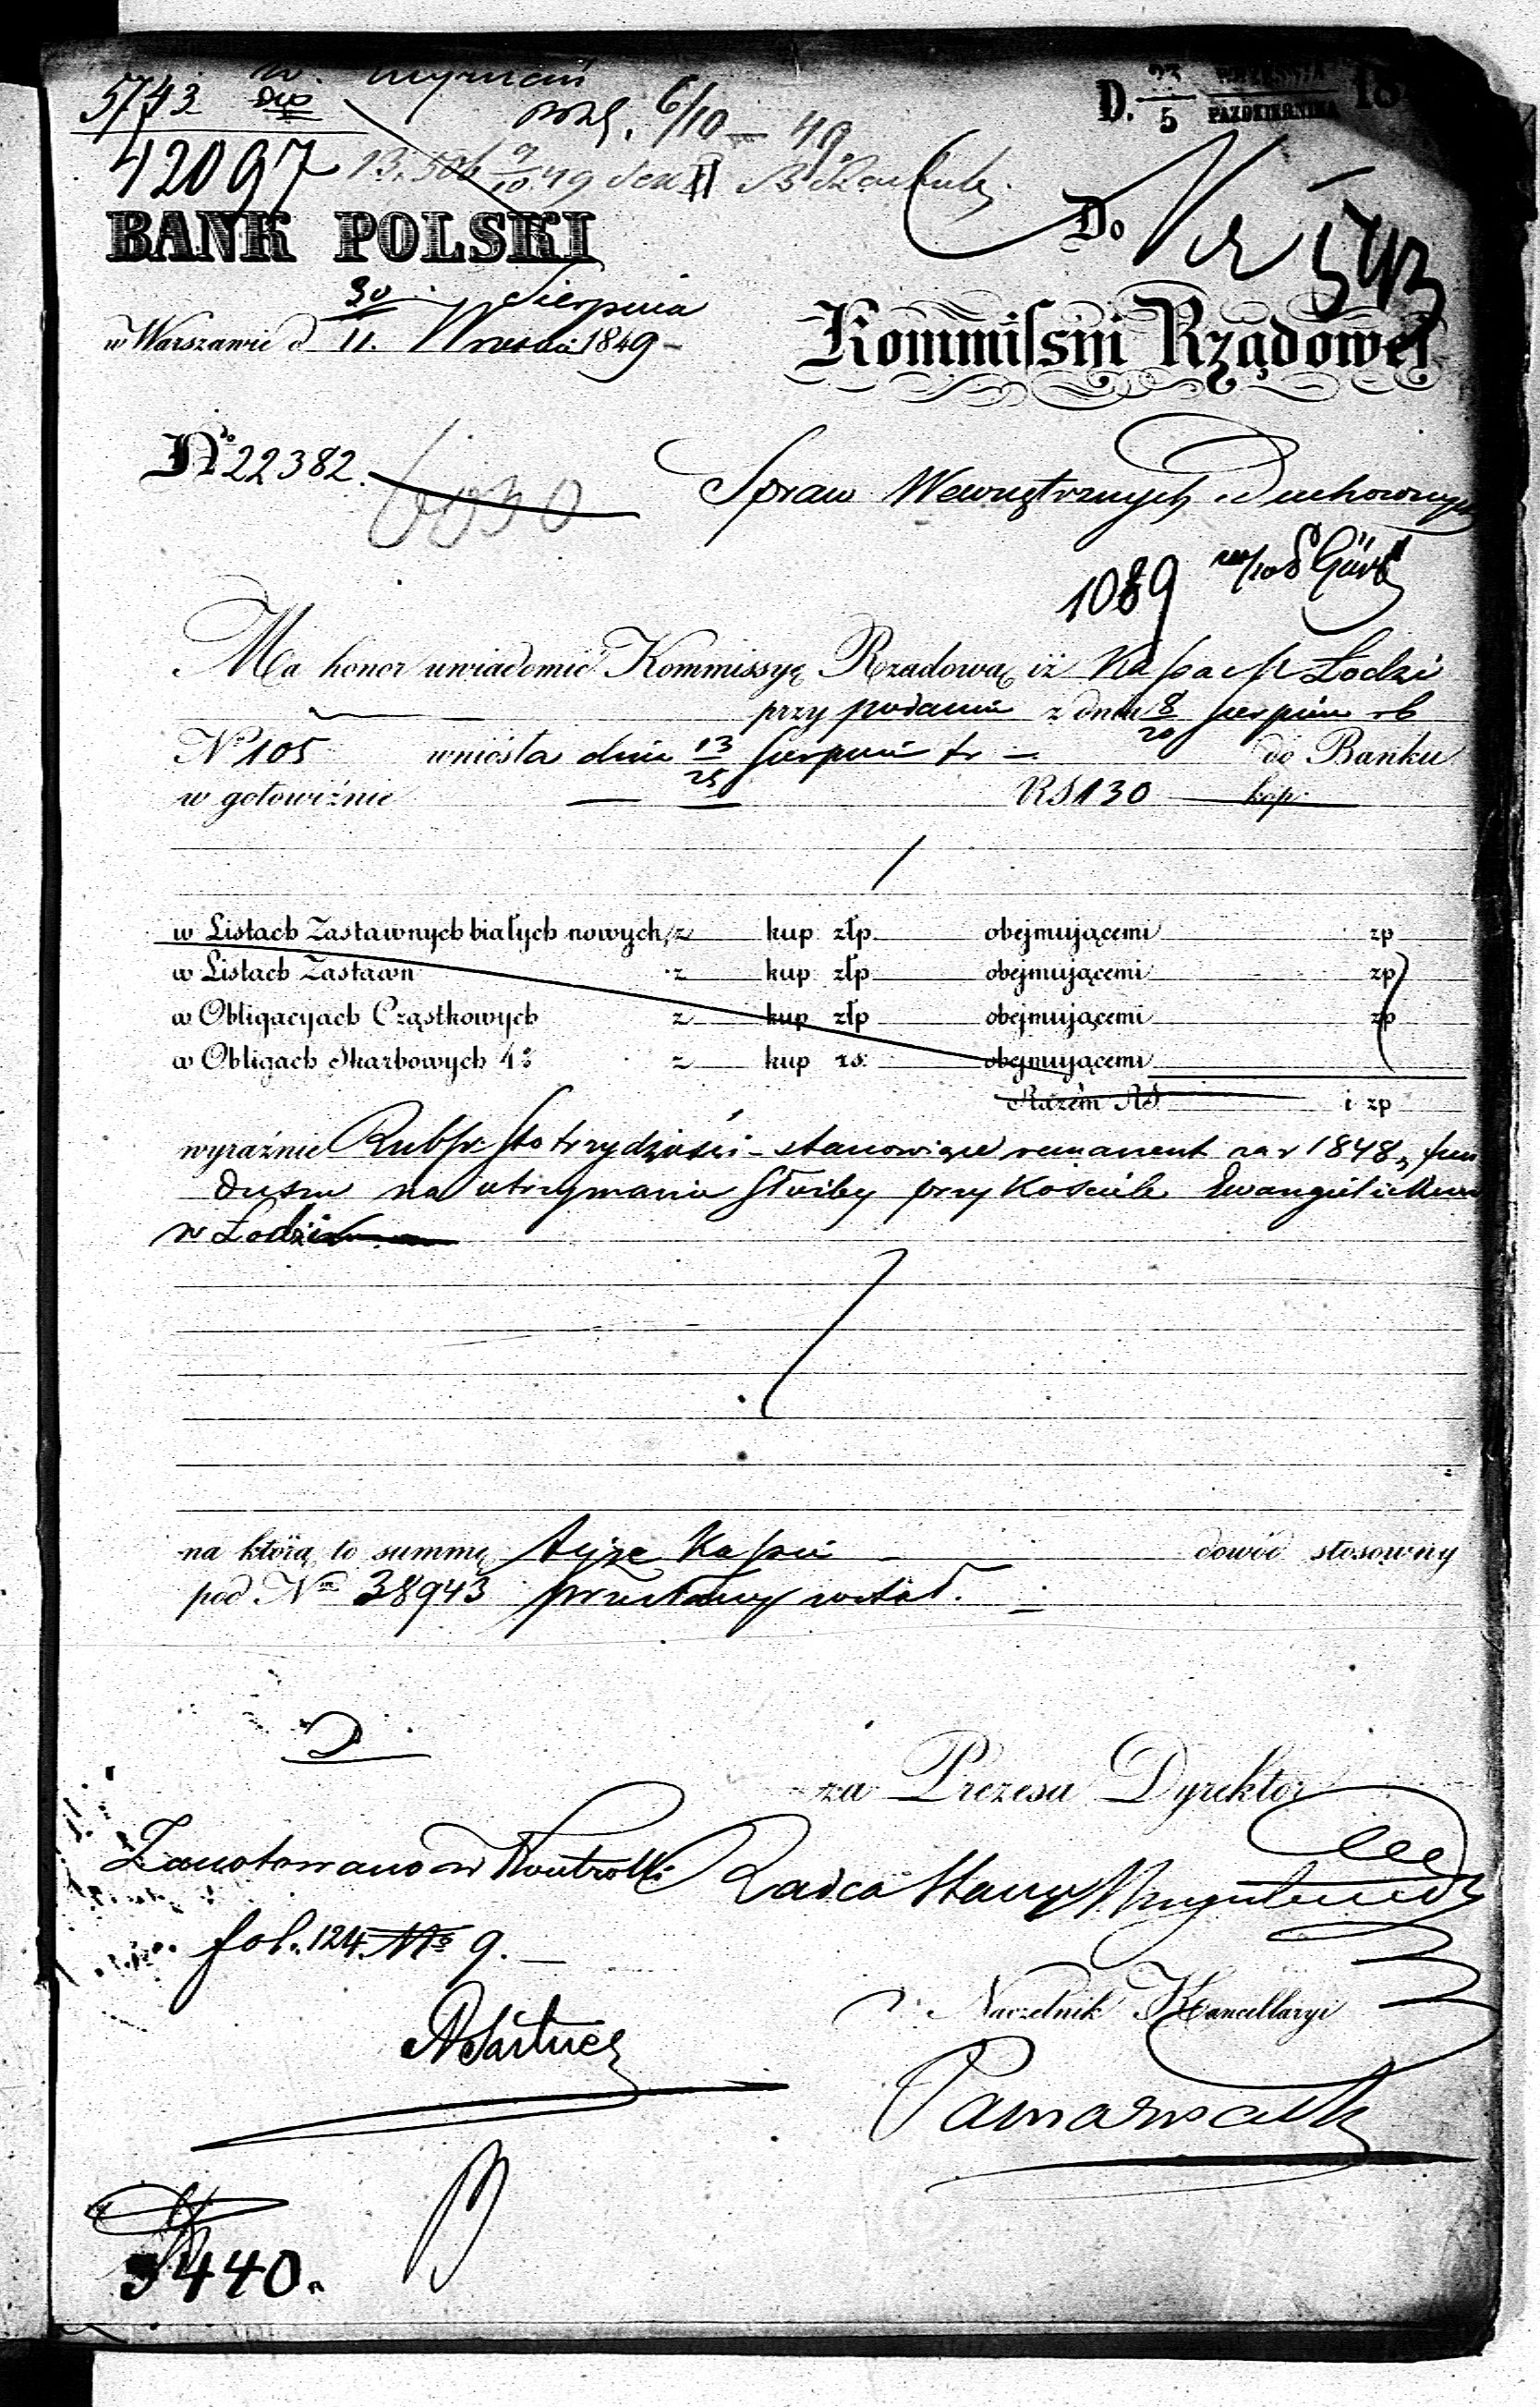 5743
42097
6/10 – 49
D. 23/5 WRZEŚNIA/PAZDZIERNIKA 18
BANK POLSKI
Do
Nr 5743
30 Sierpnia
w Warszawie d 11. Wrześni 1849 –
Kommissyi Rządowej
No 22382.
6030
Spraw Wewnętrznych Duchownych
1089
Ma honor uwiadomić Kommissyę Rządową iż Kassa Łodzi
przy podaniu z dnia 8/20 Sierpnia rb
No 105 wniosła dnia 13/25 Sierpnia tr – do Banku
w gotowiźnie — RS 130 — kop:
w Listach Zastawnych białych nowych z kup złp obejmującemi zp
w Listach Zastawn z kup złp obejmującemi zp
w Obligacyjach Cząstkowych z kup złp obejmującemi zp
w Obligach Skarbowych 4% z kup rs: obejmującemi
Razem RS i zp
wyraźnie Rubsr: Sto trzydzieści – stanowiące remanent za r 1848 z fun
duszu na utrzymanie służby przy Kościele Ewangielickim
w Łodzi
na którą to summę tejże Kassie – dowód stosowny
pod Nm 38943 przesłany został.
za Prezesa Dyrektor
Zanotowano w Kontrolli
Radca Stanu
fol. 124 No 9. —
Naczelnik Kancellaryi
3440.